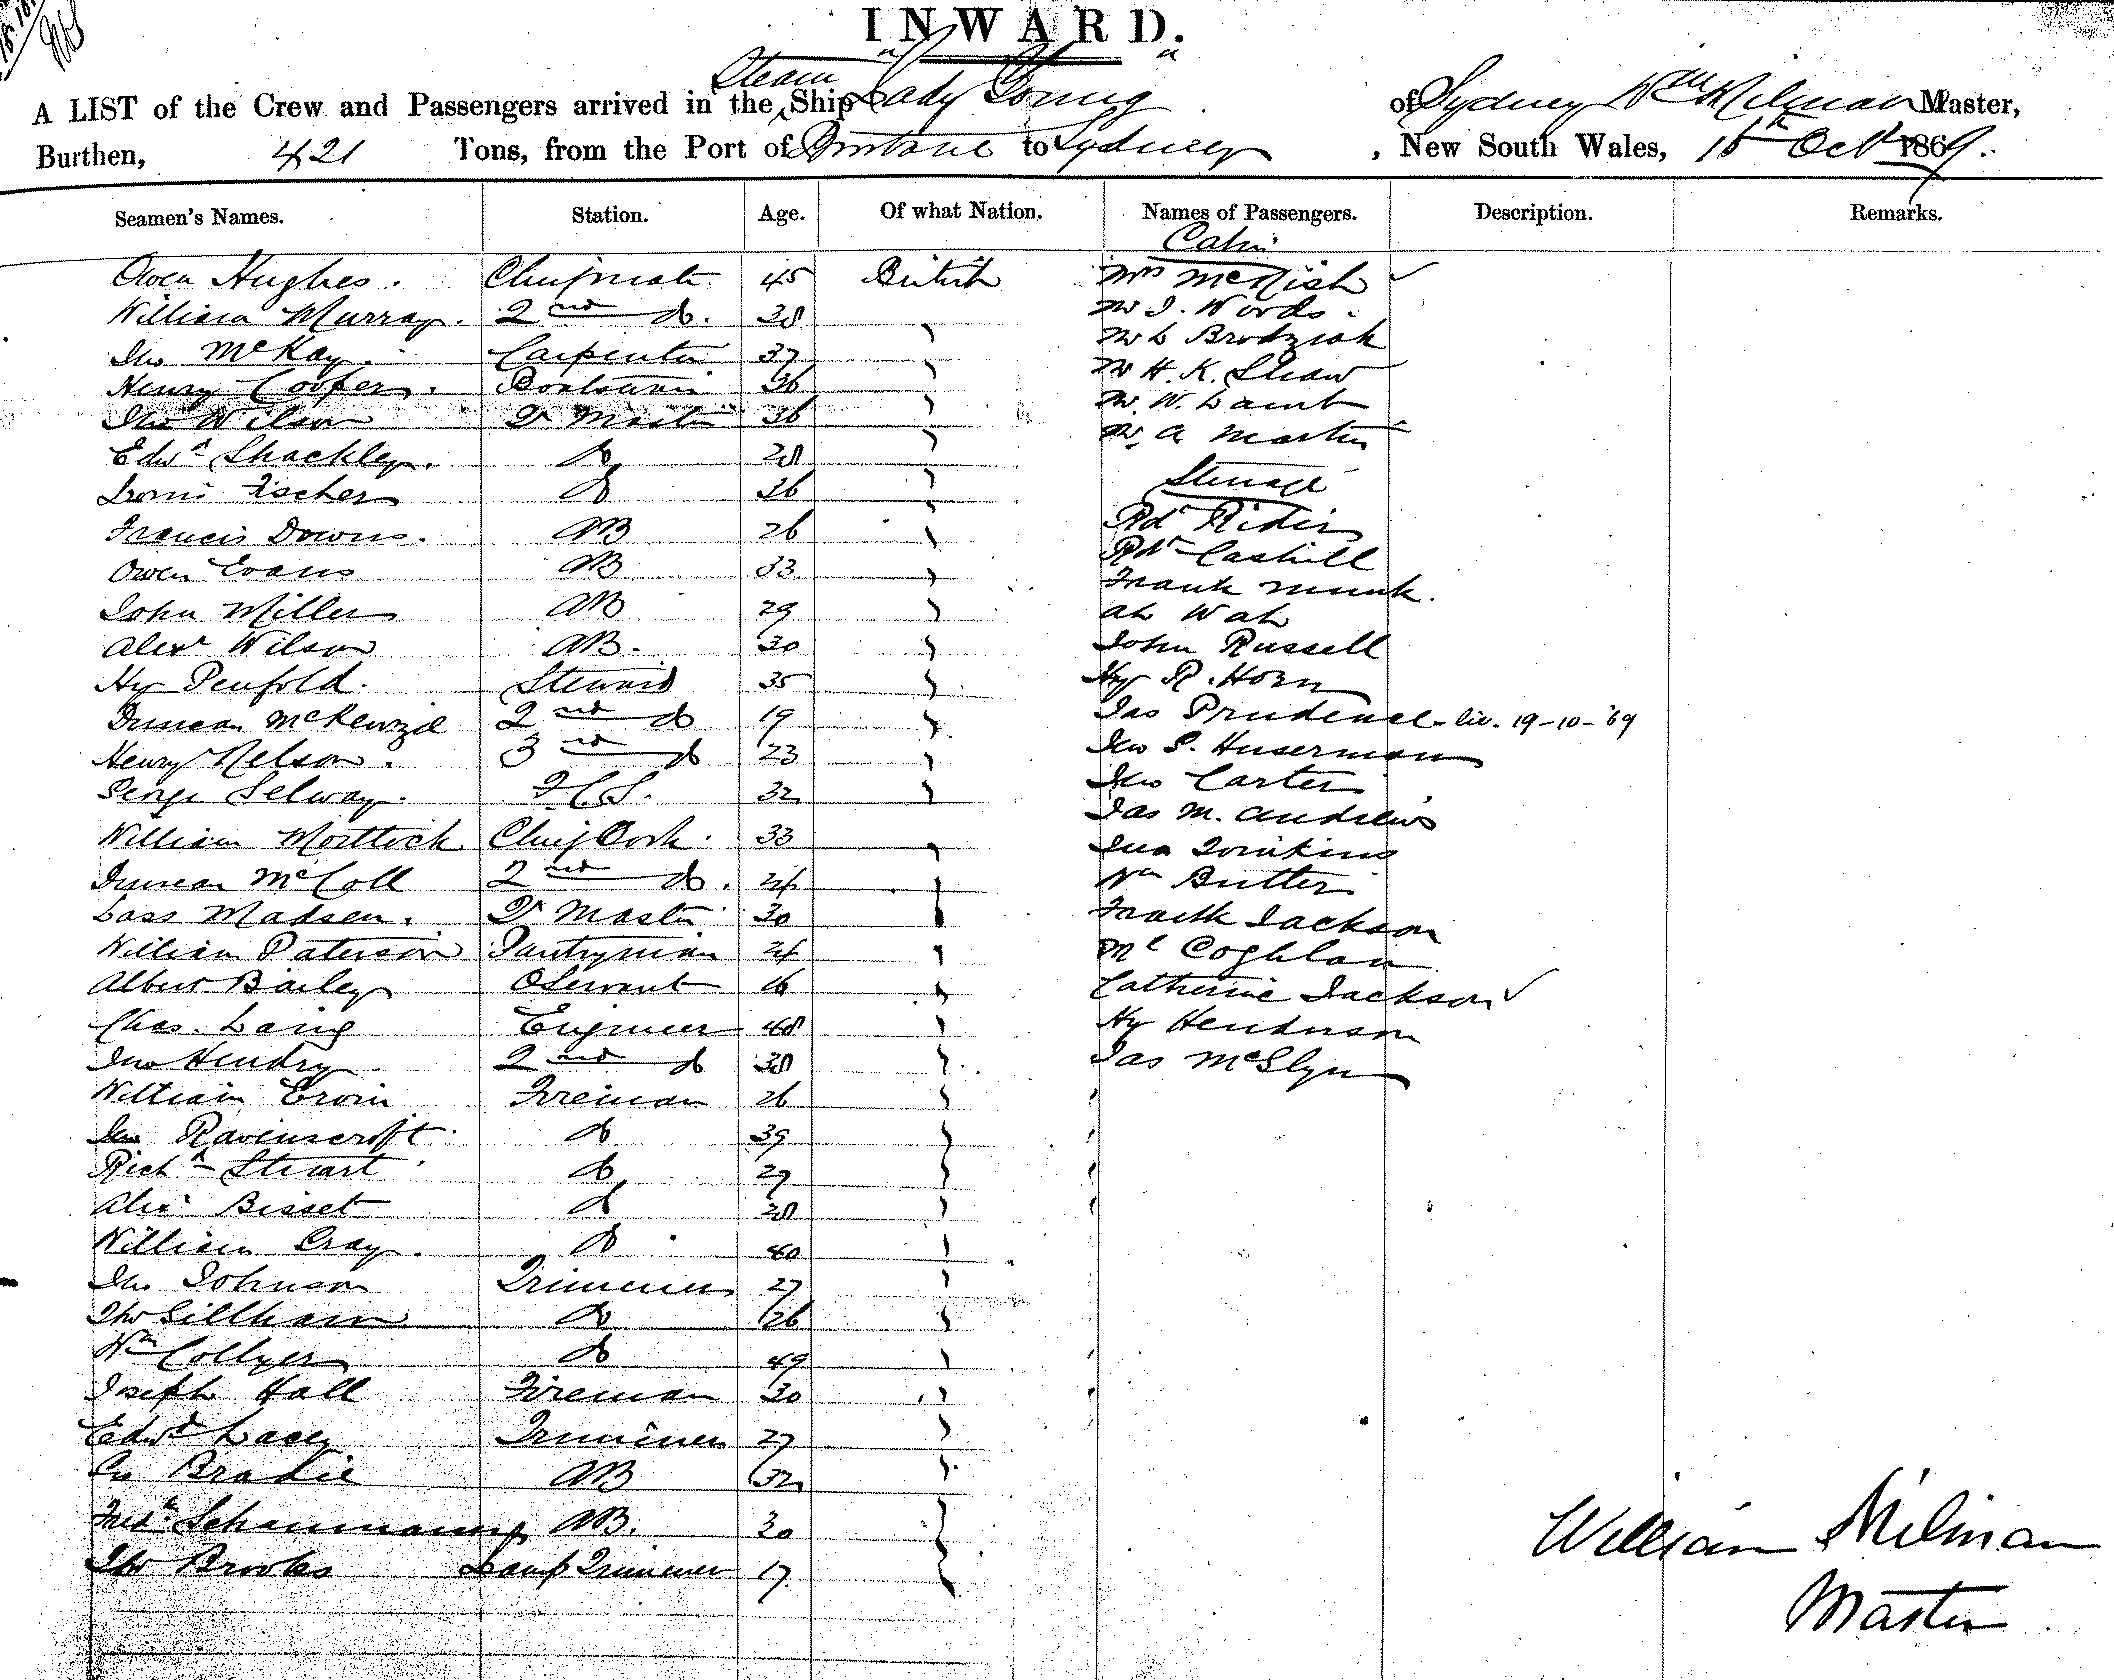 INWARD.
A LIST of the Crew and Passengers arrived in the Steam Ship "Lady Young" of Sydney Wm Milman Master,
Burthen, 421 Tons, from the Port of Brisbane to Sydney, New South Wales, 18th Oct 1869.
Seamen's Names. Station. Age. Of what Nation. Names of Passengers. Description. Remarks.
Cabin
Owen Hughes. Chief mate 45 British Mrs McNish ✓
William Murray. 2nd do. 38 Mr J. Woods.
Jno McKay. Carpenter 37 Mr L Brodziak
Henry Cooper. Boatswain 36 Mr H. K. Shaw
Jno Wilson Qr Master 36 Mr. W. Lamb
Edwd Shackley. do 28 Mr. A Martin
Steerage
Fischer do 36 Rd Rider
Francis Downs. AB 26 Rd Caskill
Owen Evans AB 33 Frank Munk.
John Miller AB 29 Ah Wah
Alexr Wilson AB. 30 John Russell
Hy Penfold. Steward 35 Hy R. Horn
Duncan McKenzie 2nd do 19 Jas Prudence - liv. 19-10-'69
Henry Nelson. 3rd do 23 Jno S. Huserman
George Selway. F.C.S. 32 Jno Carter
William Mortlock Chief Cook. 33 Jas M. Andrews
Duncan McColl 2nd do. 24 Jno Tomkins
Lass Madsen. Qr Master 30 Wm Butler
William Paterson Pantryman 24 Frank Jackson
Albert Bailey OServant 16 Ml Coghlan
Chas. Laing Engineer 48 Catherine Jackson ✓
Jno Hendry 2nd do 38 Hy Henderson
William Ervin Fireman 26 Jas McGlyn
Jno Ravenscroft. do 39
Richd Stuart do 29
Alexr Bisset do 28
William Gray. do 40
Jno Johnson Trimmer 27
Thos Gillham do 26
Wm Collyer do 49
Joseph Hall Fireman 30
Edwd Lacey Trimmer 27
Bradie AB 32
Fredk Schaumann AB. 30
Thos Brooks Lamp Trimmer 17
William Milman
Master